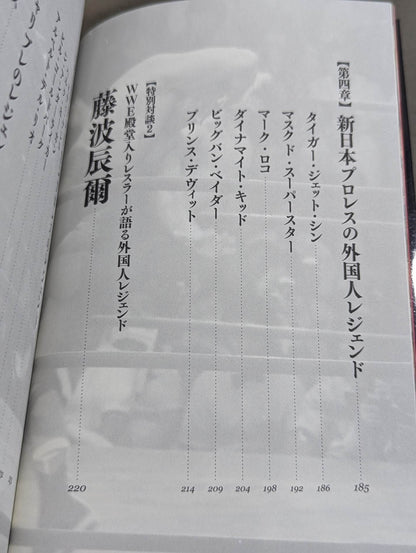 【第四章】 新日本プロレスの外国人レジェンド 185
タイガー・ジェット・シン 186
マスクド・スーパースター 192
マーク・ロコ 198
ダイナマイト・キッド 204
ビッグバン・ベイダー 209
プリンス・デヴィット 214
【特別対談2】
WWE殿堂入りレスラーが語る外国人レジェンド
藤波辰爾 220